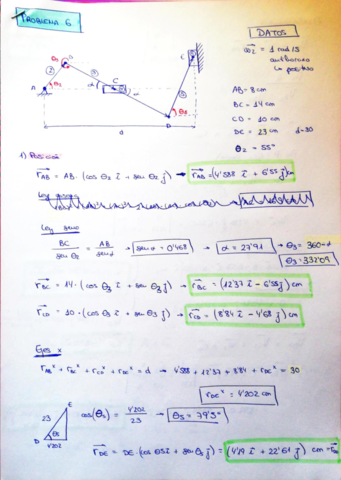 PROBLEMA 6
DATOS
ω₂ = 1 rad/s
antihorario
positivo
AB = 8 cm
BC = 14 cm
CD = 10 cm
DE = 23 cm d=30
θ₂ = 55°
A
C
D
E
d
1) POSICIÓN
r_AB = AB · (cos θ₂ i + sen θ₂ j) → r_AB = (4'588 i + 6'55 j) cm
Ley seno
BC / sen θ₂ = AB / sen α → sen α = 0'468 → α = 27'91 → θ₃ = 360 - α
θ₃ = 332'09
r_BC = 14 · (cos θ₃ i + sen θ₃ j) → r_BC = (12'37 i - 6'55 j) cm
r_CD = 10 · (cos θ₃ i + sen θ₃ j) → r_CD = (8'84 i - 4'68 j) cm
Ejes x
r_AB^x + r_BC^x + r_CD^x + r_DE^x = d → 4'588 + 12'37 + 8'84 + r_DE^x = 30
r_DE^x = 4'202 cm
E
23
D
θ₅
4'202
cos(θ₅) = 4'202 / 23 → θ₅ = 79'5°
r_DE = DE · (cos θ₅ i + sen θ₅ j) = (4'19 i + 22'61 j) cm